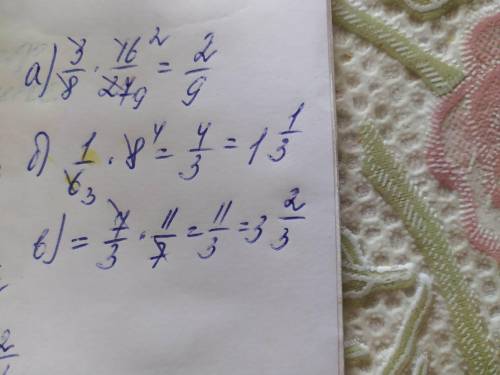 а) 3/8 · 16²/27₉ = 2/9
б) 1/6₃ · 8⁴ = 4/3 = 1 1/3
в) = 7/3 · 11/7 = 11/3 = 3 2/3
2